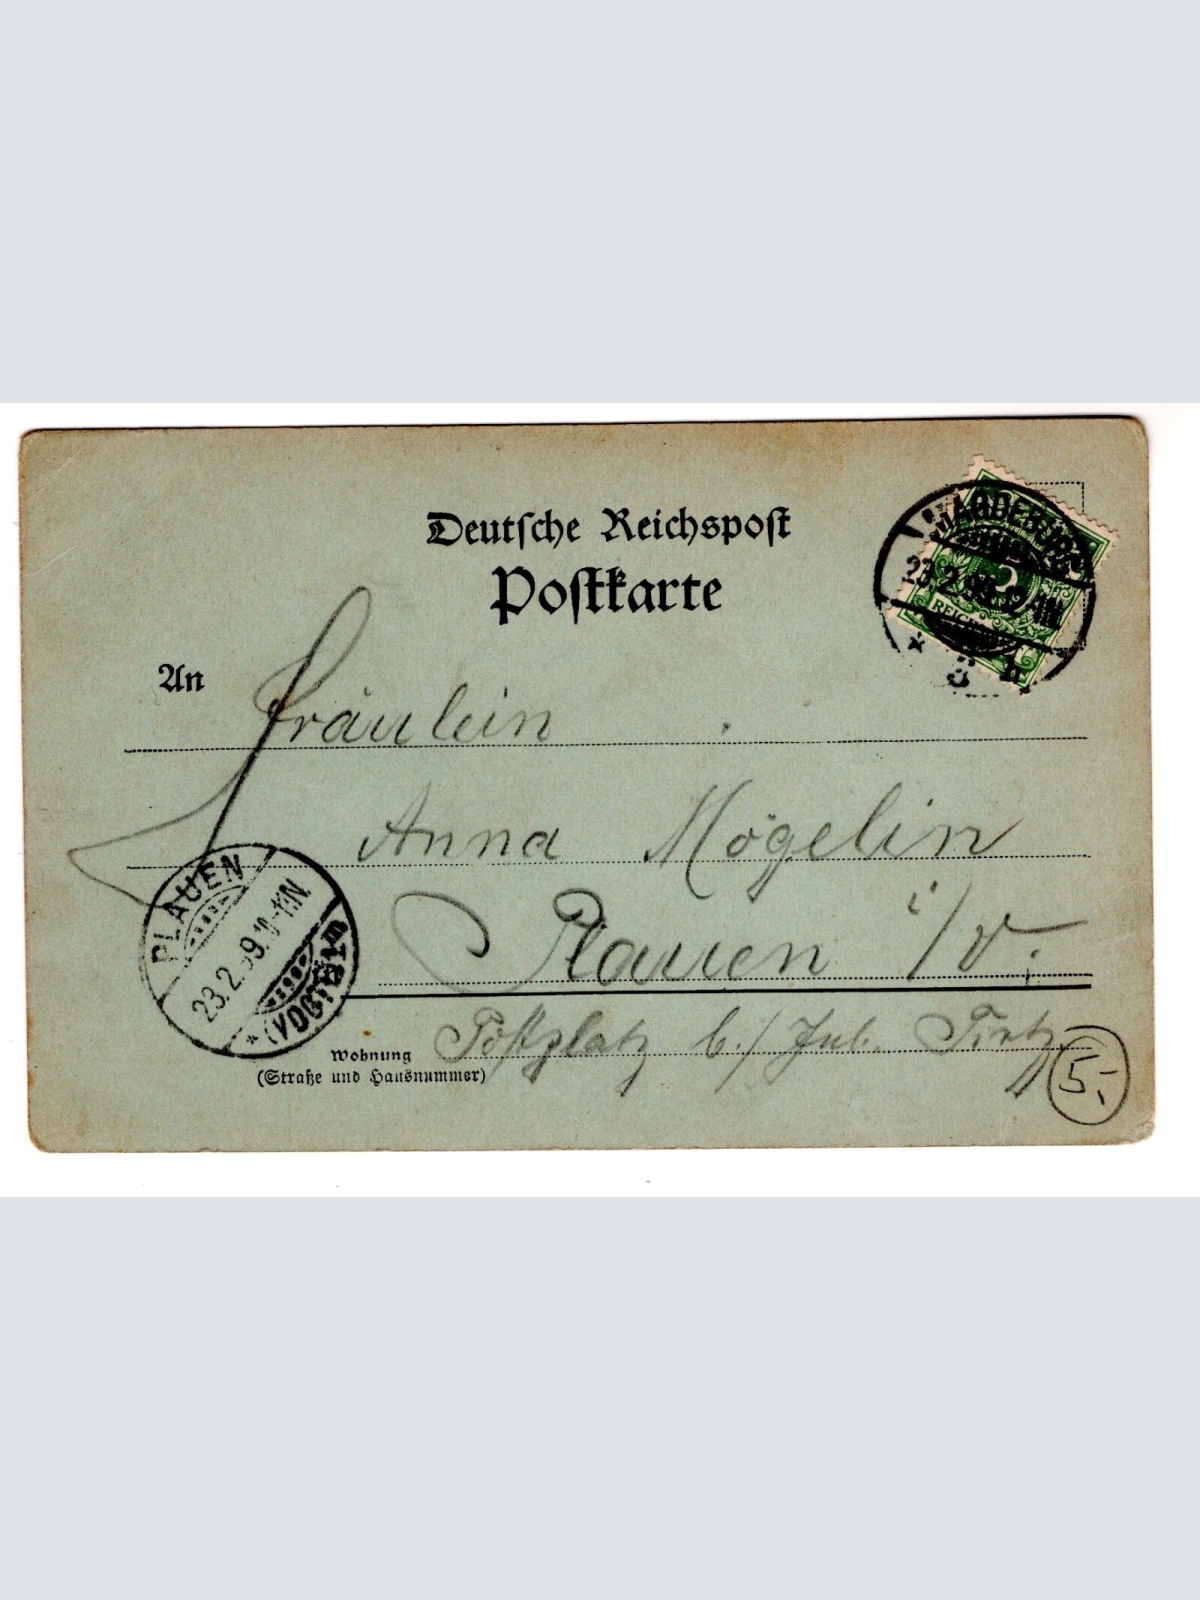 Deutsche Reichspost
Postkarte
MAGDEBURG
23.2.99. 12 N.
REICHSPOST
* 3 h
An Fräulein
Anna Mögelin
Plauen i/V.
PLAUEN
23.2.99. 11-12N.
* (VOGTL)
Wohnung
(Straße und Hausnummer)
Postplatz b./ Jul. Tietz
5,-